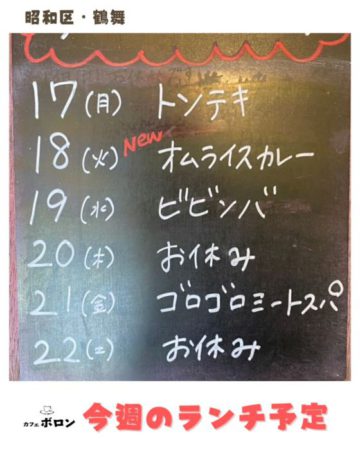 昭和区・鶴舞
17(月) トンテキ
18(火) New オムライスカレー
19(水) ビビンバ
20(木) お休み
21(金) ゴロゴロミートスパ
22(土) お休み
カフェ ボロン 今週のランチ予定